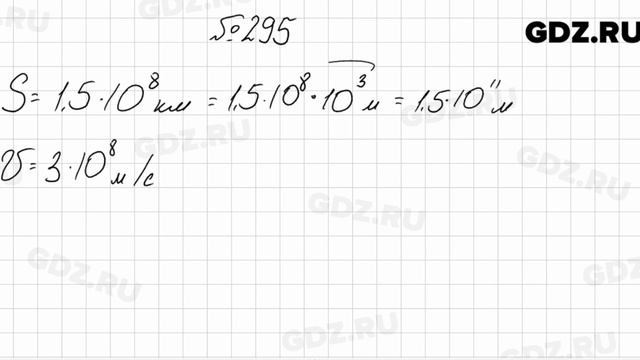 №295
GDZ.RU
S = 1,5·10⁸ км = 1,5·10⁸·10³ м = 1,5·10¹¹ м
GDZ.RU
GDZ.RU
GDZ.RU
υ = 3·10⁸ м/с
GDZ.RU
GDZ.RU
GDZ.RU
GDZ.RU
GDZ.RU